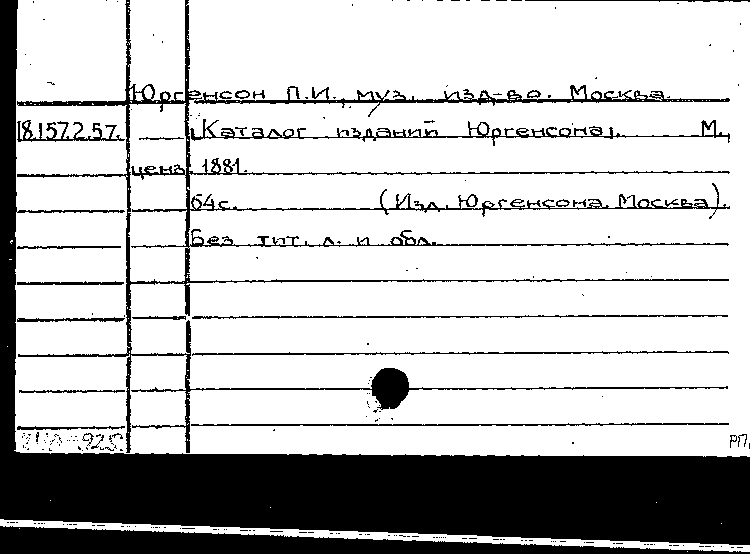 Юргенсон П.И., муз. изд-во. Москва.
18.157.2.57. [Каталог изданий Юргенсона]. М.,
ценз. 1881.
64с. (Изд. Юргенсона. Москва).
Без тит. л. и обл.
РП,